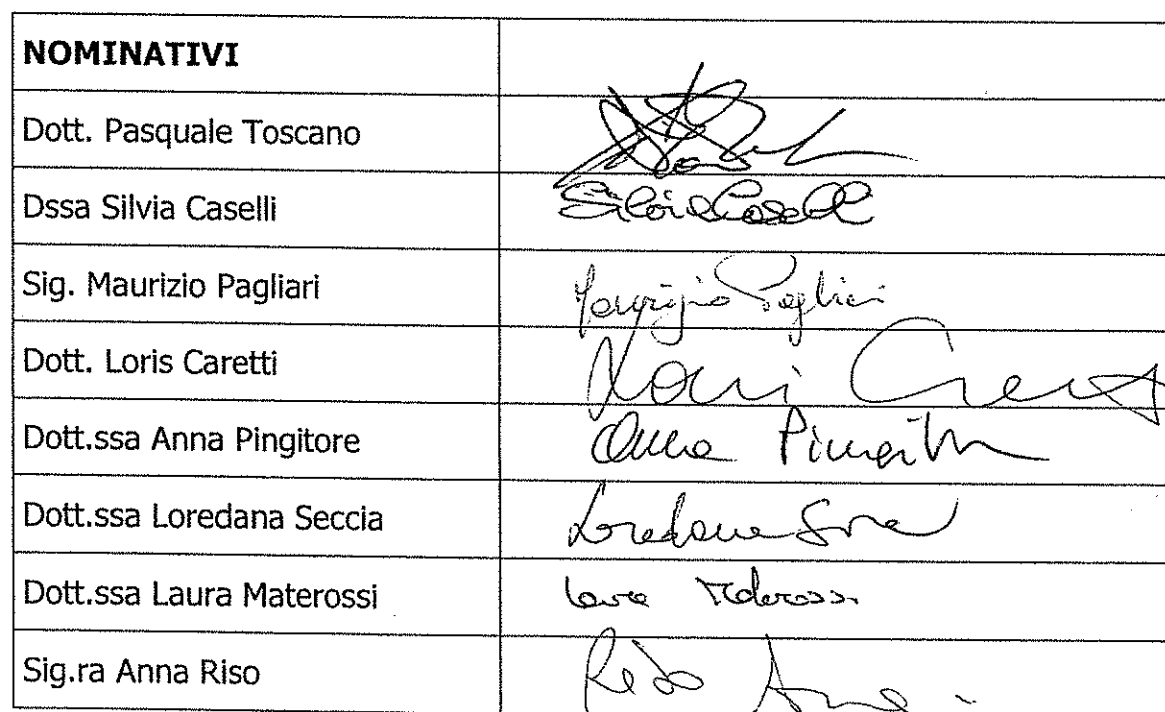 NOMINATIVI
Dott. Pasquale Toscano
Dssa Silvia Caselli Silvia Caselli
Sig. Maurizio Pagliari Maurizio Pagliari
Dott. Loris Caretti Loris
Dott.ssa Anna Pingitore Anna
Dott.ssa Loredana Seccia Loredana
Dott.ssa Laura Materossi Laura Materossi
Sig.ra Anna Riso Riso Anna